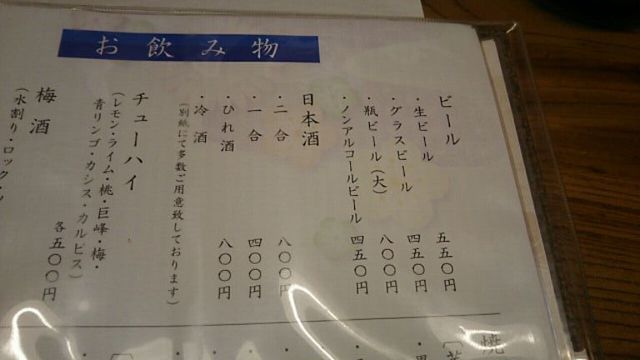 お飲み物
ビール
・生ビール 五五〇円
・グラスビール 四五〇円
・瓶ビール(大) 八〇〇円
・ノンアルコールビール 四五〇円
日本酒
・二合 八〇〇円
・一合 四〇〇円
・ひれ酒 八〇〇円
・冷酒
(別紙にて多数ご用意致しております)
チューハイ
(レモン・ライム・桃・巨峰・梅・
青リンゴ・カシス・カルピス)
各五〇〇円
梅酒
(水割り・ロック・ソ
焼